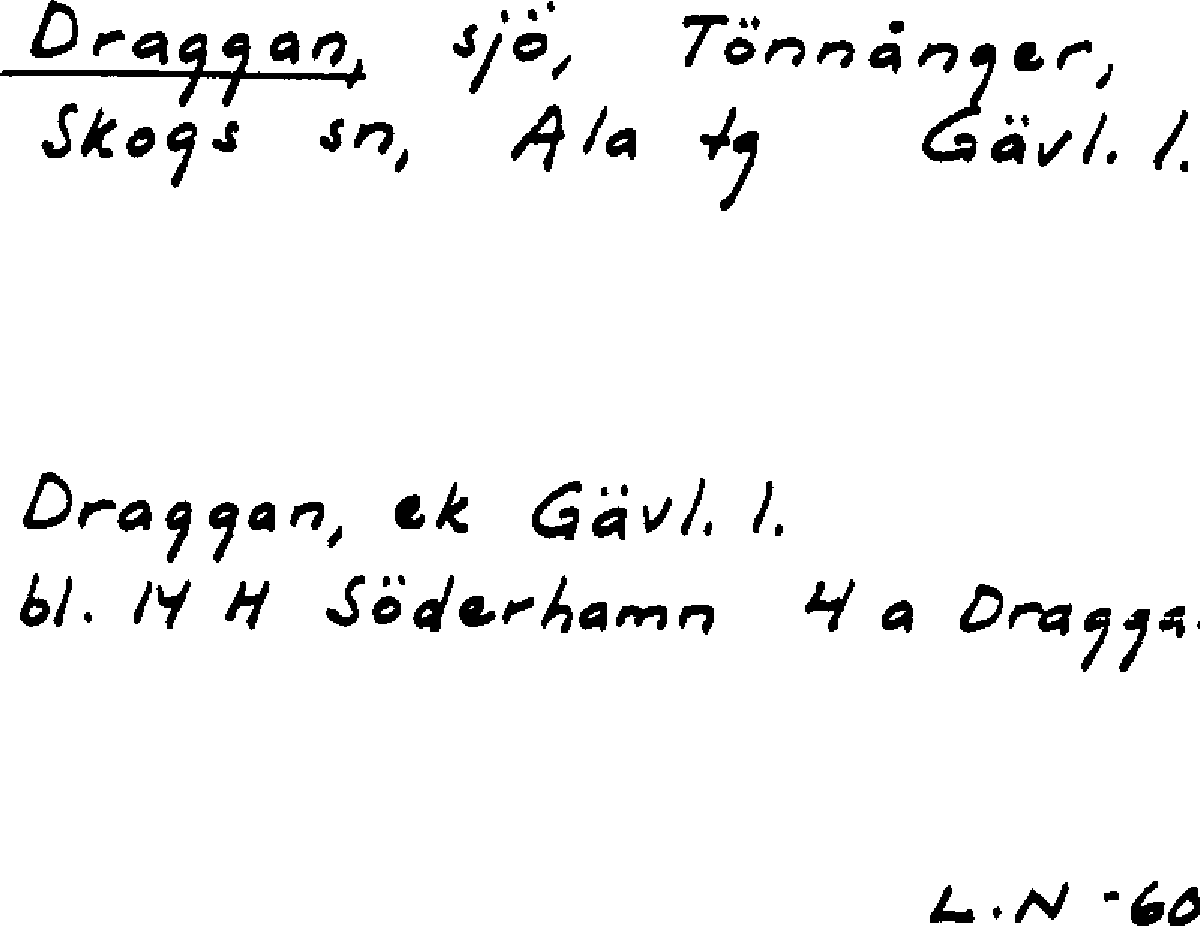 Draggan, sjö, Tönnånger,
Skogs sn, Ala tg Gävl. l.
Draggan, ek Gävl. l.
bl. 14 H Söderhamn 4 a Dragga
L.N -60